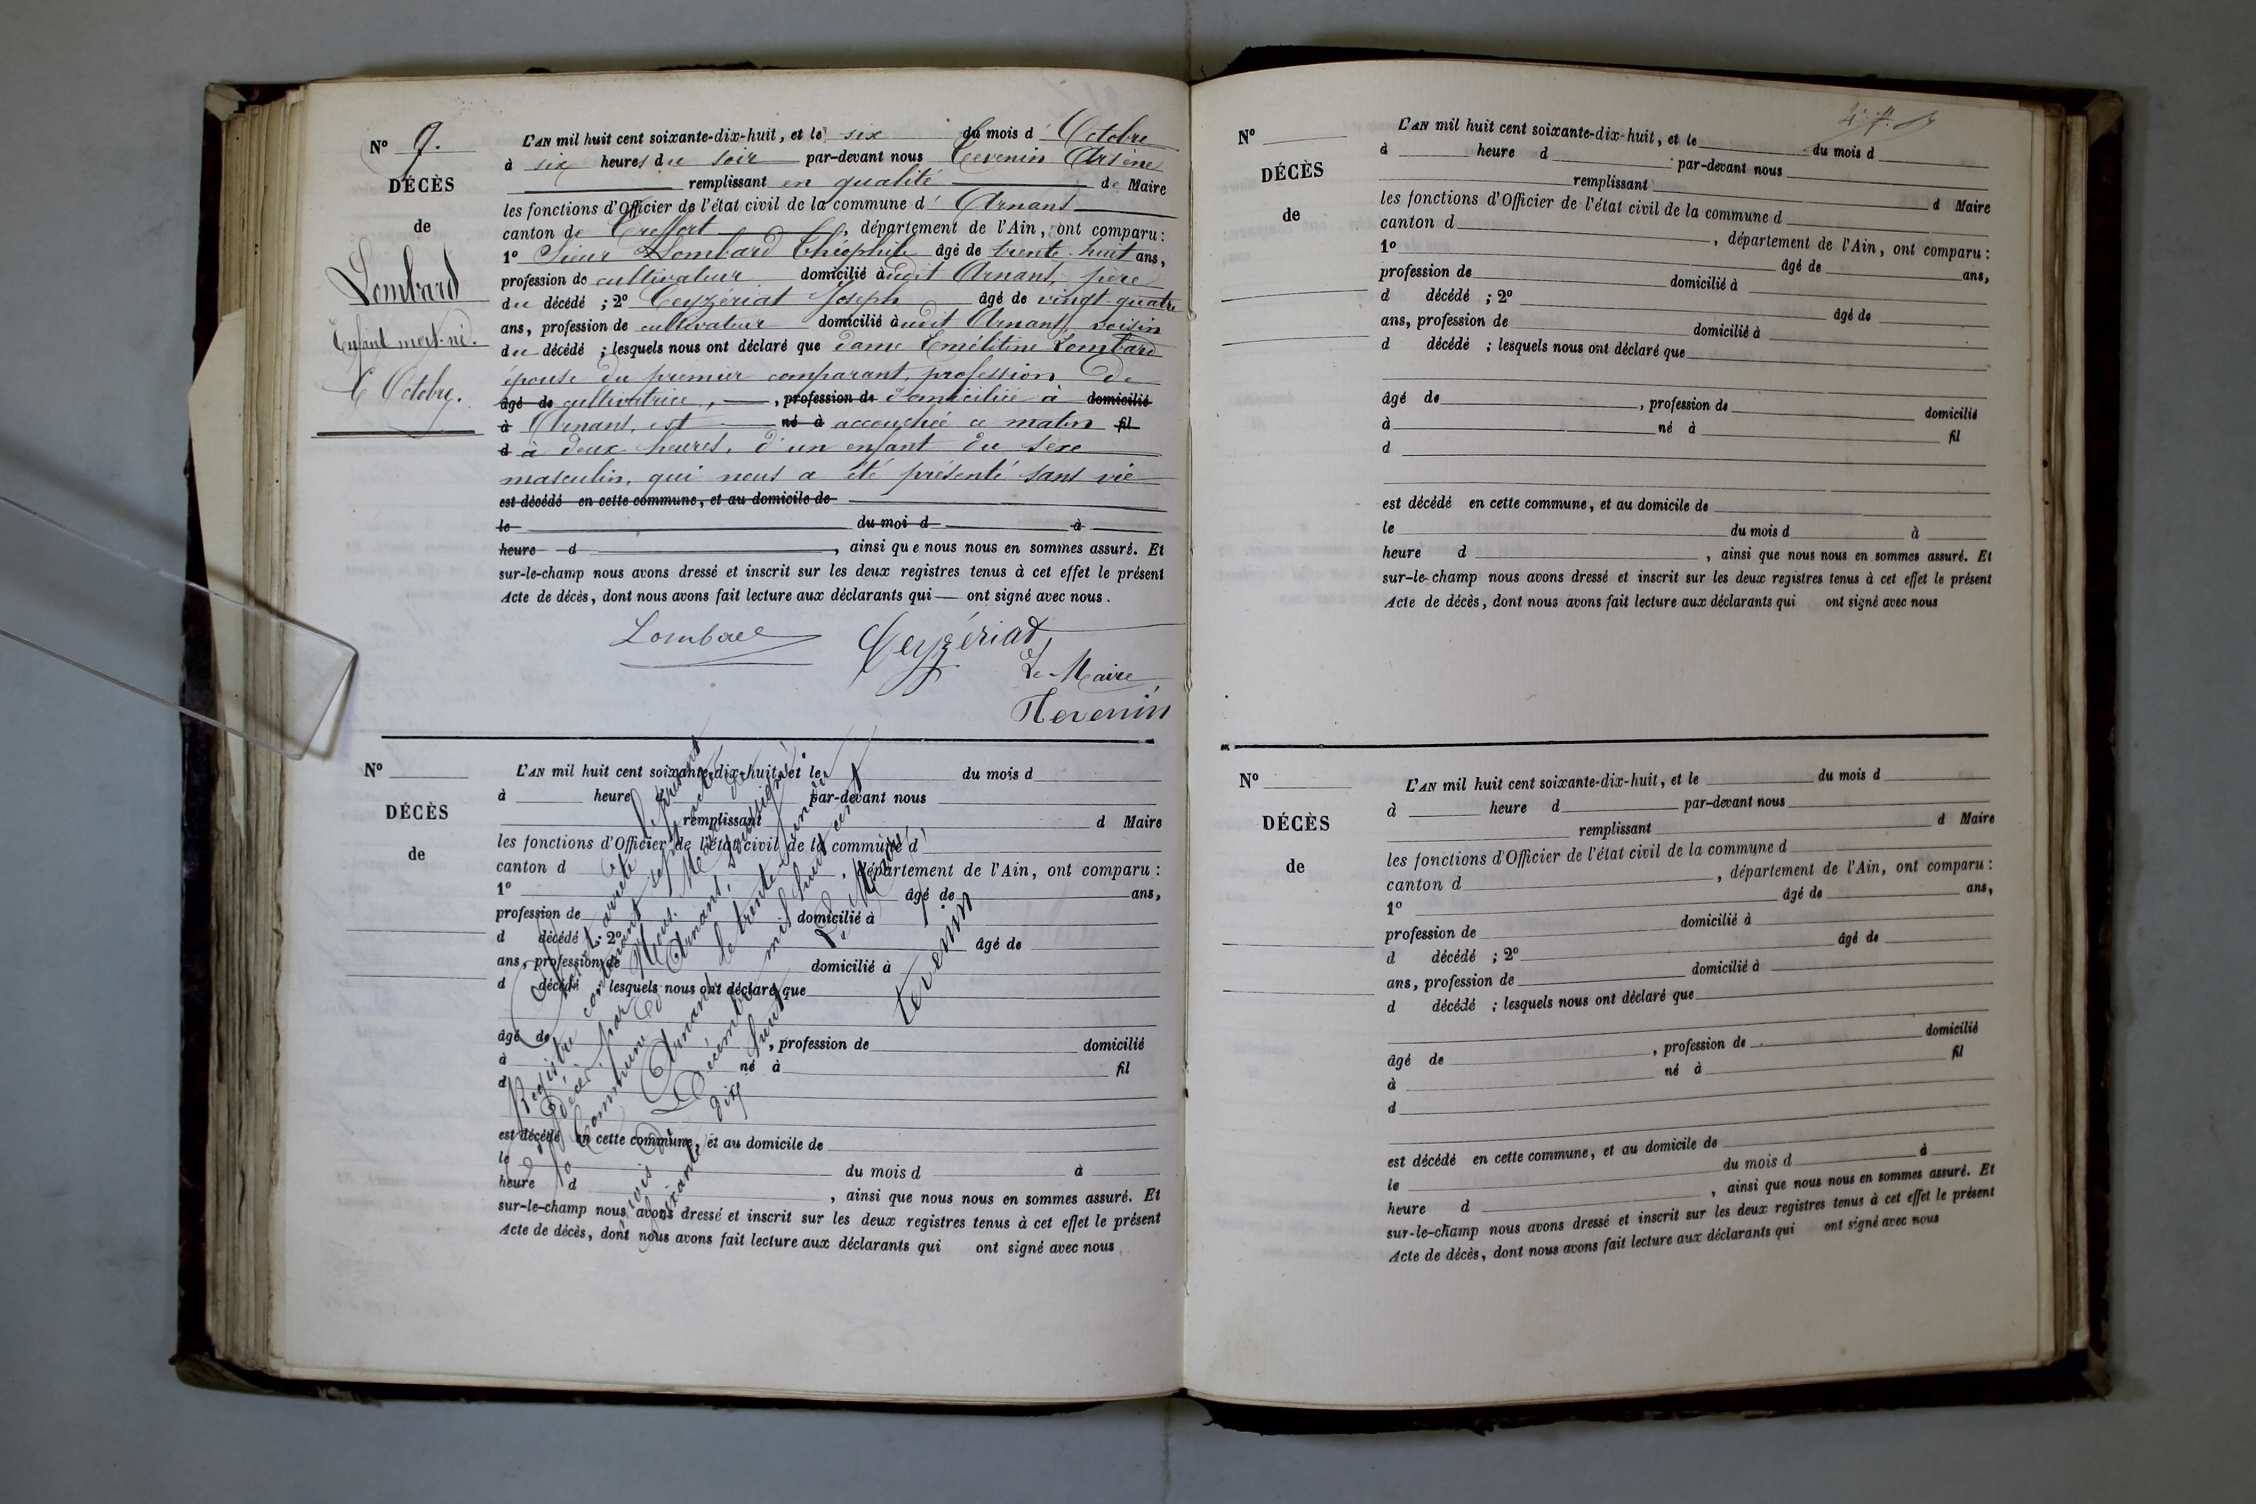 N° 9.
DÉCÈS
de
Lombard
Enfant mort-né.
6 Octobre.
L'AN mil huit cent soixante-dix-huit, et le six du mois d'Octobre
à six heures du soir par-devant nous Tevenin Arsène
remplissant en qualité de Maire
les fonctions d'Officier de l'état civil de la commune d'Arnans
canton de Treffort, département de l'Ain, ont comparu :
1° Sieur Lombard Théophile âgé de trente-huit ans,
profession de cultivateur domicilié audit Arnans, père
du décédé ; 2° Ceyzériat Joseph âgé de vingt-quatre
ans, profession de cultivateur domicilié audit Arnans, voisin
du décédé ; lesquels nous ont déclaré que dame Lombard
épouse du premier comparant, profession de
âgé de cultivatrice, , profession de domiciliée à domicilié
à Arnans, est né à accouchée ce matin fil
d à deux heures, d'un enfant du sexe
masculin, qui nous a été présenté sans vie
est décédé en cette commune, et au domicile de
le du moi d à
heure d , ainsi que nous nous en sommes assuré. Et
sur-le-champ nous avons dressé et inscrit sur les deux registres tenus à cet effet le présent
Acte de décès, dont nous avons fait lecture aux déclarants qui — ont signé avec nous.
Lombard Ceyzériat
Le Maire,
Tevenin
N°
DÉCÈS
de
L'AN mil huit cent soixante-dix-huit, et le du mois d
à heure d par-devant nous
remplissant d Maire
les fonctions d'Officier de l'état civil de la commune d
canton d , département de l'Ain, ont comparu :
1° âgé de ans,
profession de domicilié à
d décédé ; 2° âgé de
ans, profession de domicilié à
d décédé ; lesquels nous ont déclaré que
âgé de , profession de domicilié
à né à fil
d
est décédé en cette commune, et au domicile de
le du mois d à
heure d , ainsi que nous nous en sommes assuré. Et
sur-le-champ nous avons dressé et inscrit sur les deux registres tenus à cet effet le présent
Acte de décès, dont nous avons fait lecture aux déclarants qui ont signé avec nous
arrêté le présent
Registre contenant sept actes de
décès par Nous, Maire de
la Commune d'Arnans, soussigné.
Arnans le trente-un du
mois de Décembre mil huit cent
soixante dix huit
Le Maire,
Tevenin
N°
DÉCÈS
de
L'AN mil huit cent soixante-dix-huit, et le du mois d
à heure d par-devant nous
remplissant d Maire
les fonctions d'Officier de l'état civil de la commune d
canton d , département de l'Ain, ont comparu :
1° âgé de ans,
profession de domicilié à
d décédé ; 2° âgé de
ans, profession de domicilié à
d décédé ; lesquels nous ont déclaré que
âgé de , profession de domicilié
à né à fil
d
est décédé en cette commune, et au domicile de
le du mois d à
heure d , ainsi que nous nous en sommes assuré. Et
sur-le-champ nous avons dressé et inscrit sur les deux registres tenus à cet effet le présent
Acte de décès, dont nous avons fait lecture aux déclarants qui ont signé avec nous
N°
DÉCÈS
de
L'AN mil huit cent soixante-dix-huit, et le du mois d
à heure d par-devant nous
remplissant d Maire
les fonctions d'Officier de l'état civil de la commune d
canton d , département de l'Ain, ont comparu :
1° âgé de ans,
profession de domicilié à
d décédé ; 2° âgé de
ans, profession de domicilié à
d décédé ; lesquels nous ont déclaré que
âgé de , profession de domicilié
à né à fil
d
est décédé en cette commune, et au domicile de
le du mois d à
heure d , ainsi que nous nous en sommes assuré. Et
sur-le-champ nous avons dressé et inscrit sur les deux registres tenus à cet effet le présent
Acte de décès, dont nous avons fait lecture aux déclarants qui ont signé avec nous